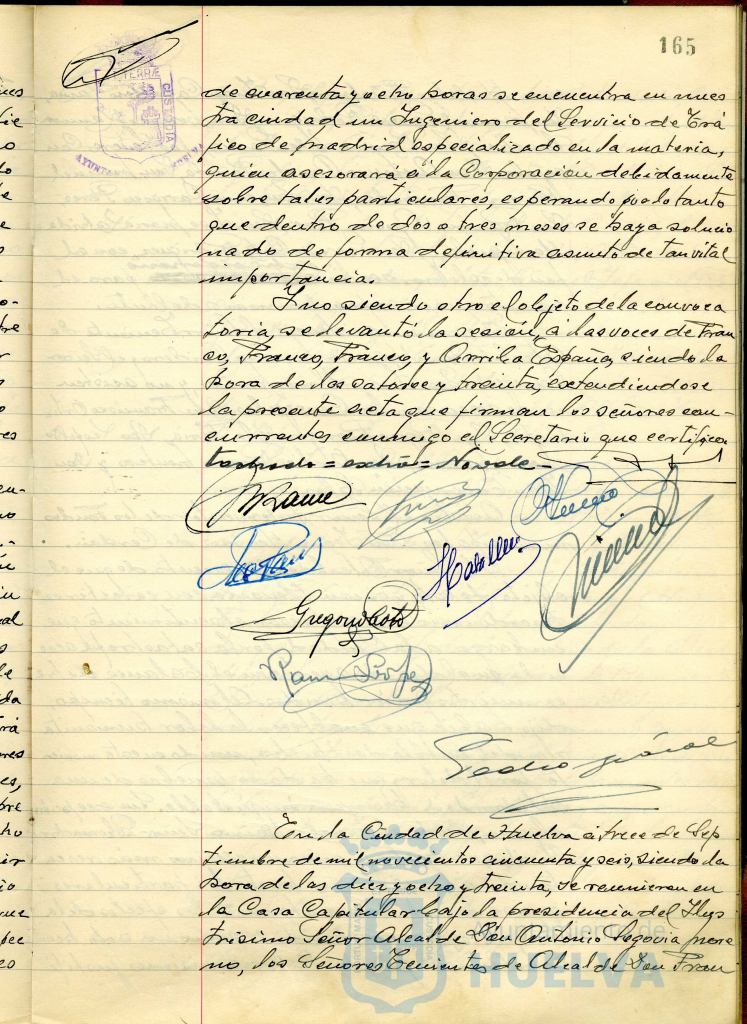 165
PORTUS MARIS ET TERRAE CUSTODIA
de cuarenta y ocho horas se encuentra en nues
tra ciudad un Ingeniero del Servicio de Trá
fico de Madrid especializado en la materia,
quien asesorará á la Corporación debidamente
sobre tales particulares, esperando por lo tanto
que dentro de dos o tres meses se haya solucio
nado de forma definitiva asunto de tan vital
importancia.
Y no siendo otro el objeto de la convoca
toria, se levantó la sesión, á las voces de Fran
co, Franco, Franco, y Arriba España, siendo la
hora de las catorce y treinta, extendiéndose
la presente acta que firman los señores con-
currentes conmigo el Secretario que certifico
tachado = extra = No vale -
Gregorio
Pedro
En la Ciudad de Huelva á trece de Sep
tiembre de mil novecientos cincuenta y seis, siendo la
hora de las diez y ocho y treinta, se reunieron en
la Casa Capitular bajo la presidencia del Ilus
trísimo Señor Alcalde Don Antonio Segovia More
no, los Señores Tenientes de Alcalde Don Fran
Ayuntamiento de
HUELVA